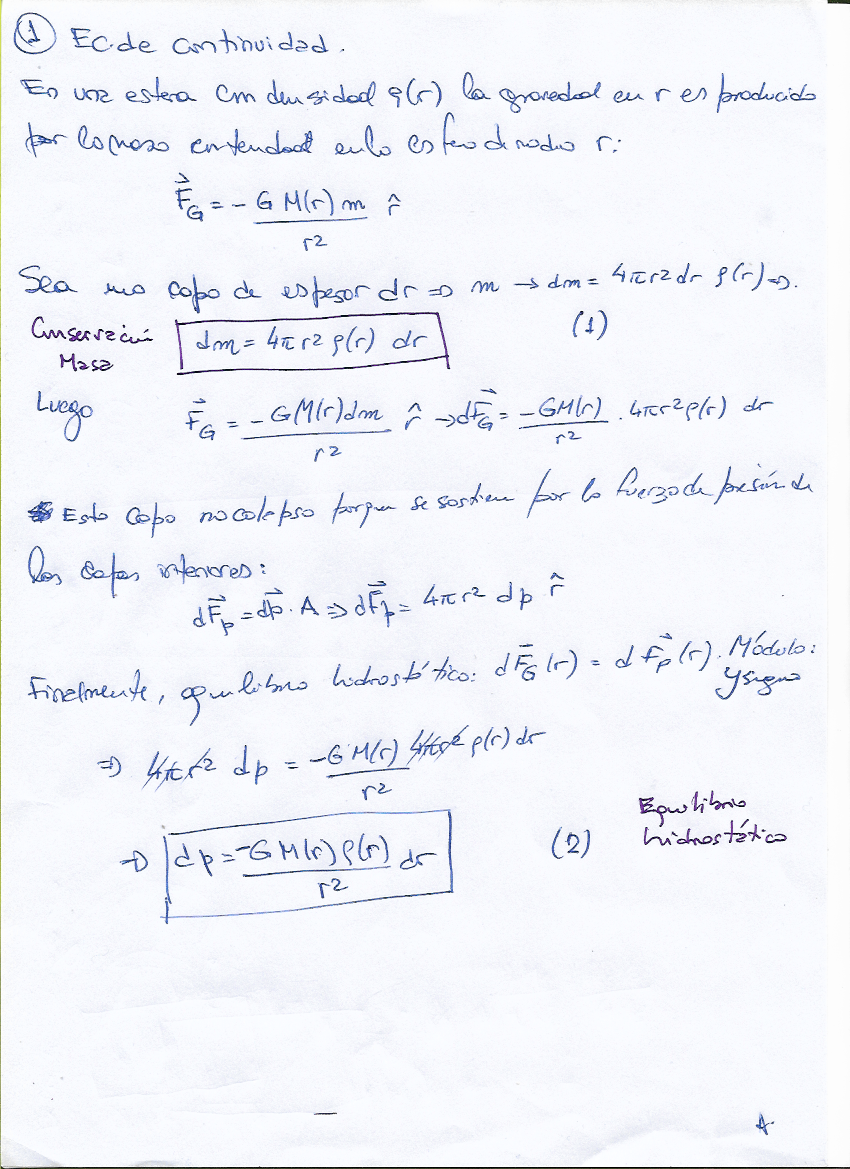 1 Ec. de continuidad.
En una esfera con densidad ρ(r) la gravedad en r es producida
por la masa contenida en la esfera de radio r:
F⃗_G = - G M(r) m / r² r̂
Sea una capa de espesor dr ⇒ m → dm = 4πr² dr ρ(r) ⇒.
Conservación Masa dm = 4π r² ρ(r) dr (1)
Luego F⃗_G = -G M(r) dm / r² r̂ → dF⃗_G = -GM(r) / r² . 4πr²ρ(r) dr
Esta capa no colapsa porque se sostiene por la fuerza de presión de
las capas interiores:
dF⃗_p = dp⃗ . A ⇒ dF⃗_p = 4πr² dp r̂
Finalmente, equilibrio hidrostático: dF⃗_G(r) = dF⃗_p(r). Módulo:
y signo
⇒ 4πr² dp = -G M(r) / r² 4πr² ρ(r) dr
Equilibrio
⇒ dp = -G M(r) ρ(r) / r² dr (2) hidrostático